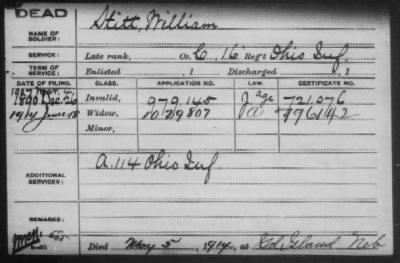 DEAD
NAME OF SOLDIER: Stitt, William
SERVICE: Late rank, Co. C, 16 Reg't Ohio Inf.
TERM OF SERVICE: Enlisted , 1 Discharged , 1
DATE OF FILING. CLASS. APPLICATION NO. LAW. CERTIFICATE NO.
1890 Dec 26 Invalid, 979,145 J. age 721,076
1914 June 18 Widow, 1029807 796142
Minor,
ADDITIONAL SERVICES: A. 114 Ohio Inf
REMARKS:
Died May 5, 1914, at Gd Island Neb